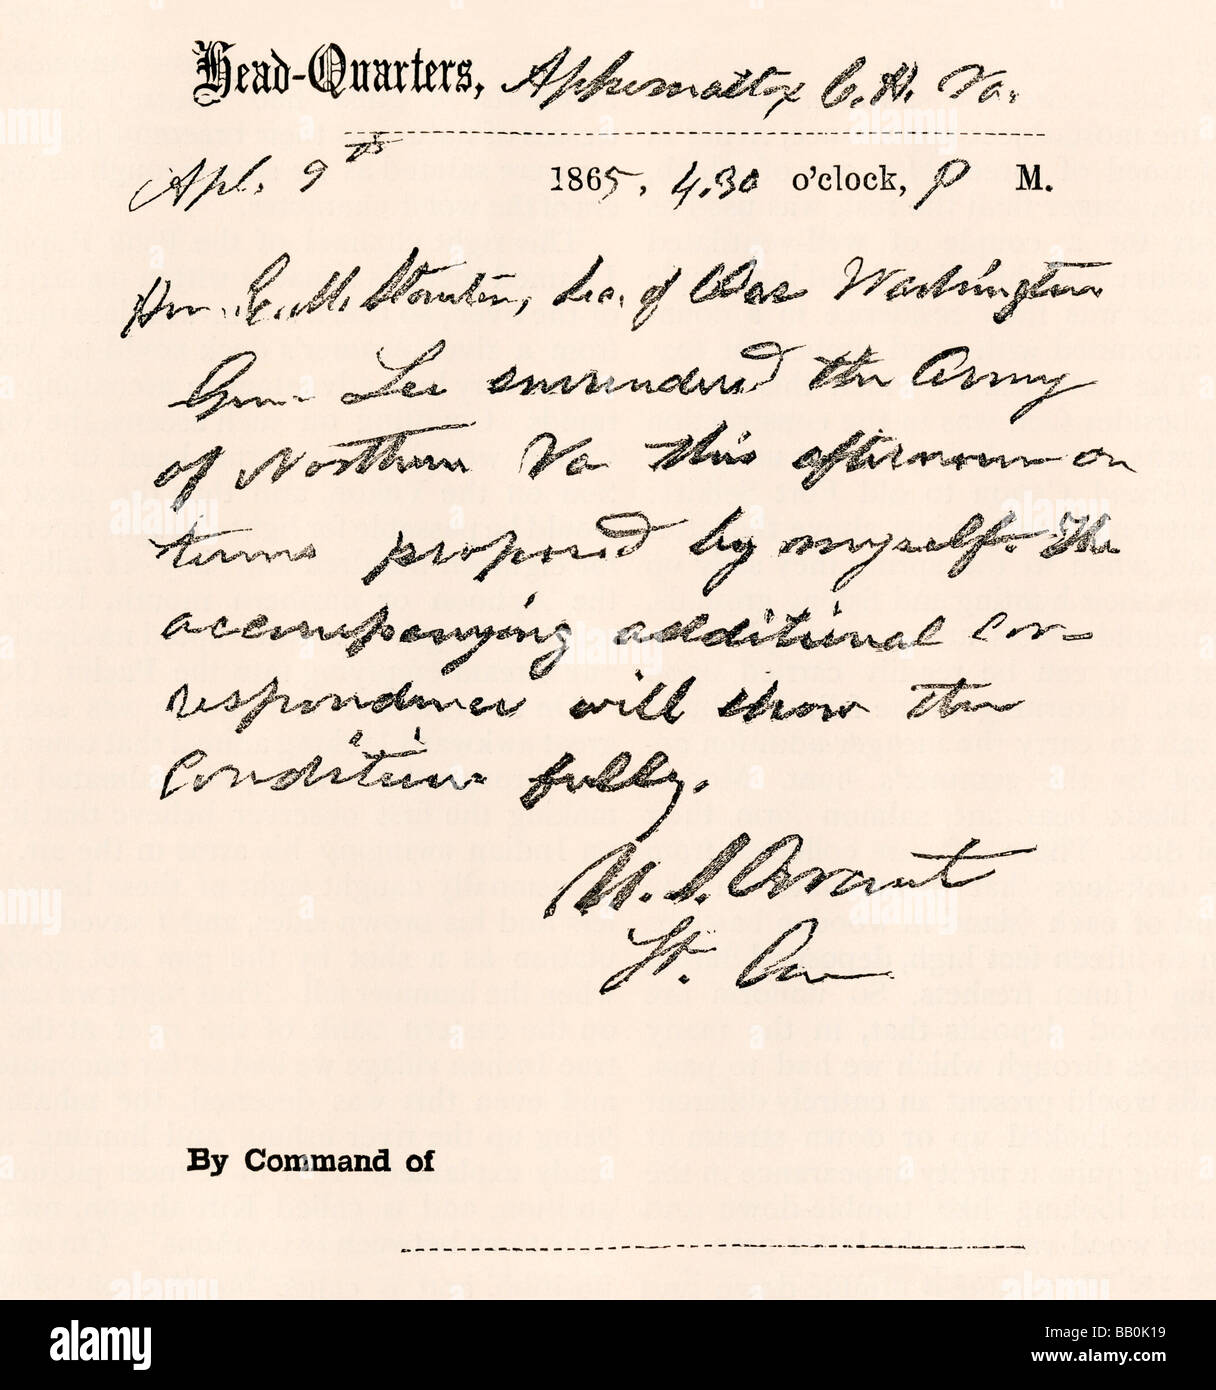 Head-Quarters, Appomattox C. H. Va.
Apl. 9th 1865, 4.30 o'clock, P M.
Hon. E. M. Stanton, Sec. of War Washington
Gen. Lee surrendered the Army
of Northern Va this afternoon on
terms proposed by myself. The
accompanying additional cor-
respondence will show the
conditions fully.
U. S. Grant
Lt. Gen
By Command of
alamy
Image ID: BB0K19
www.alamy.com